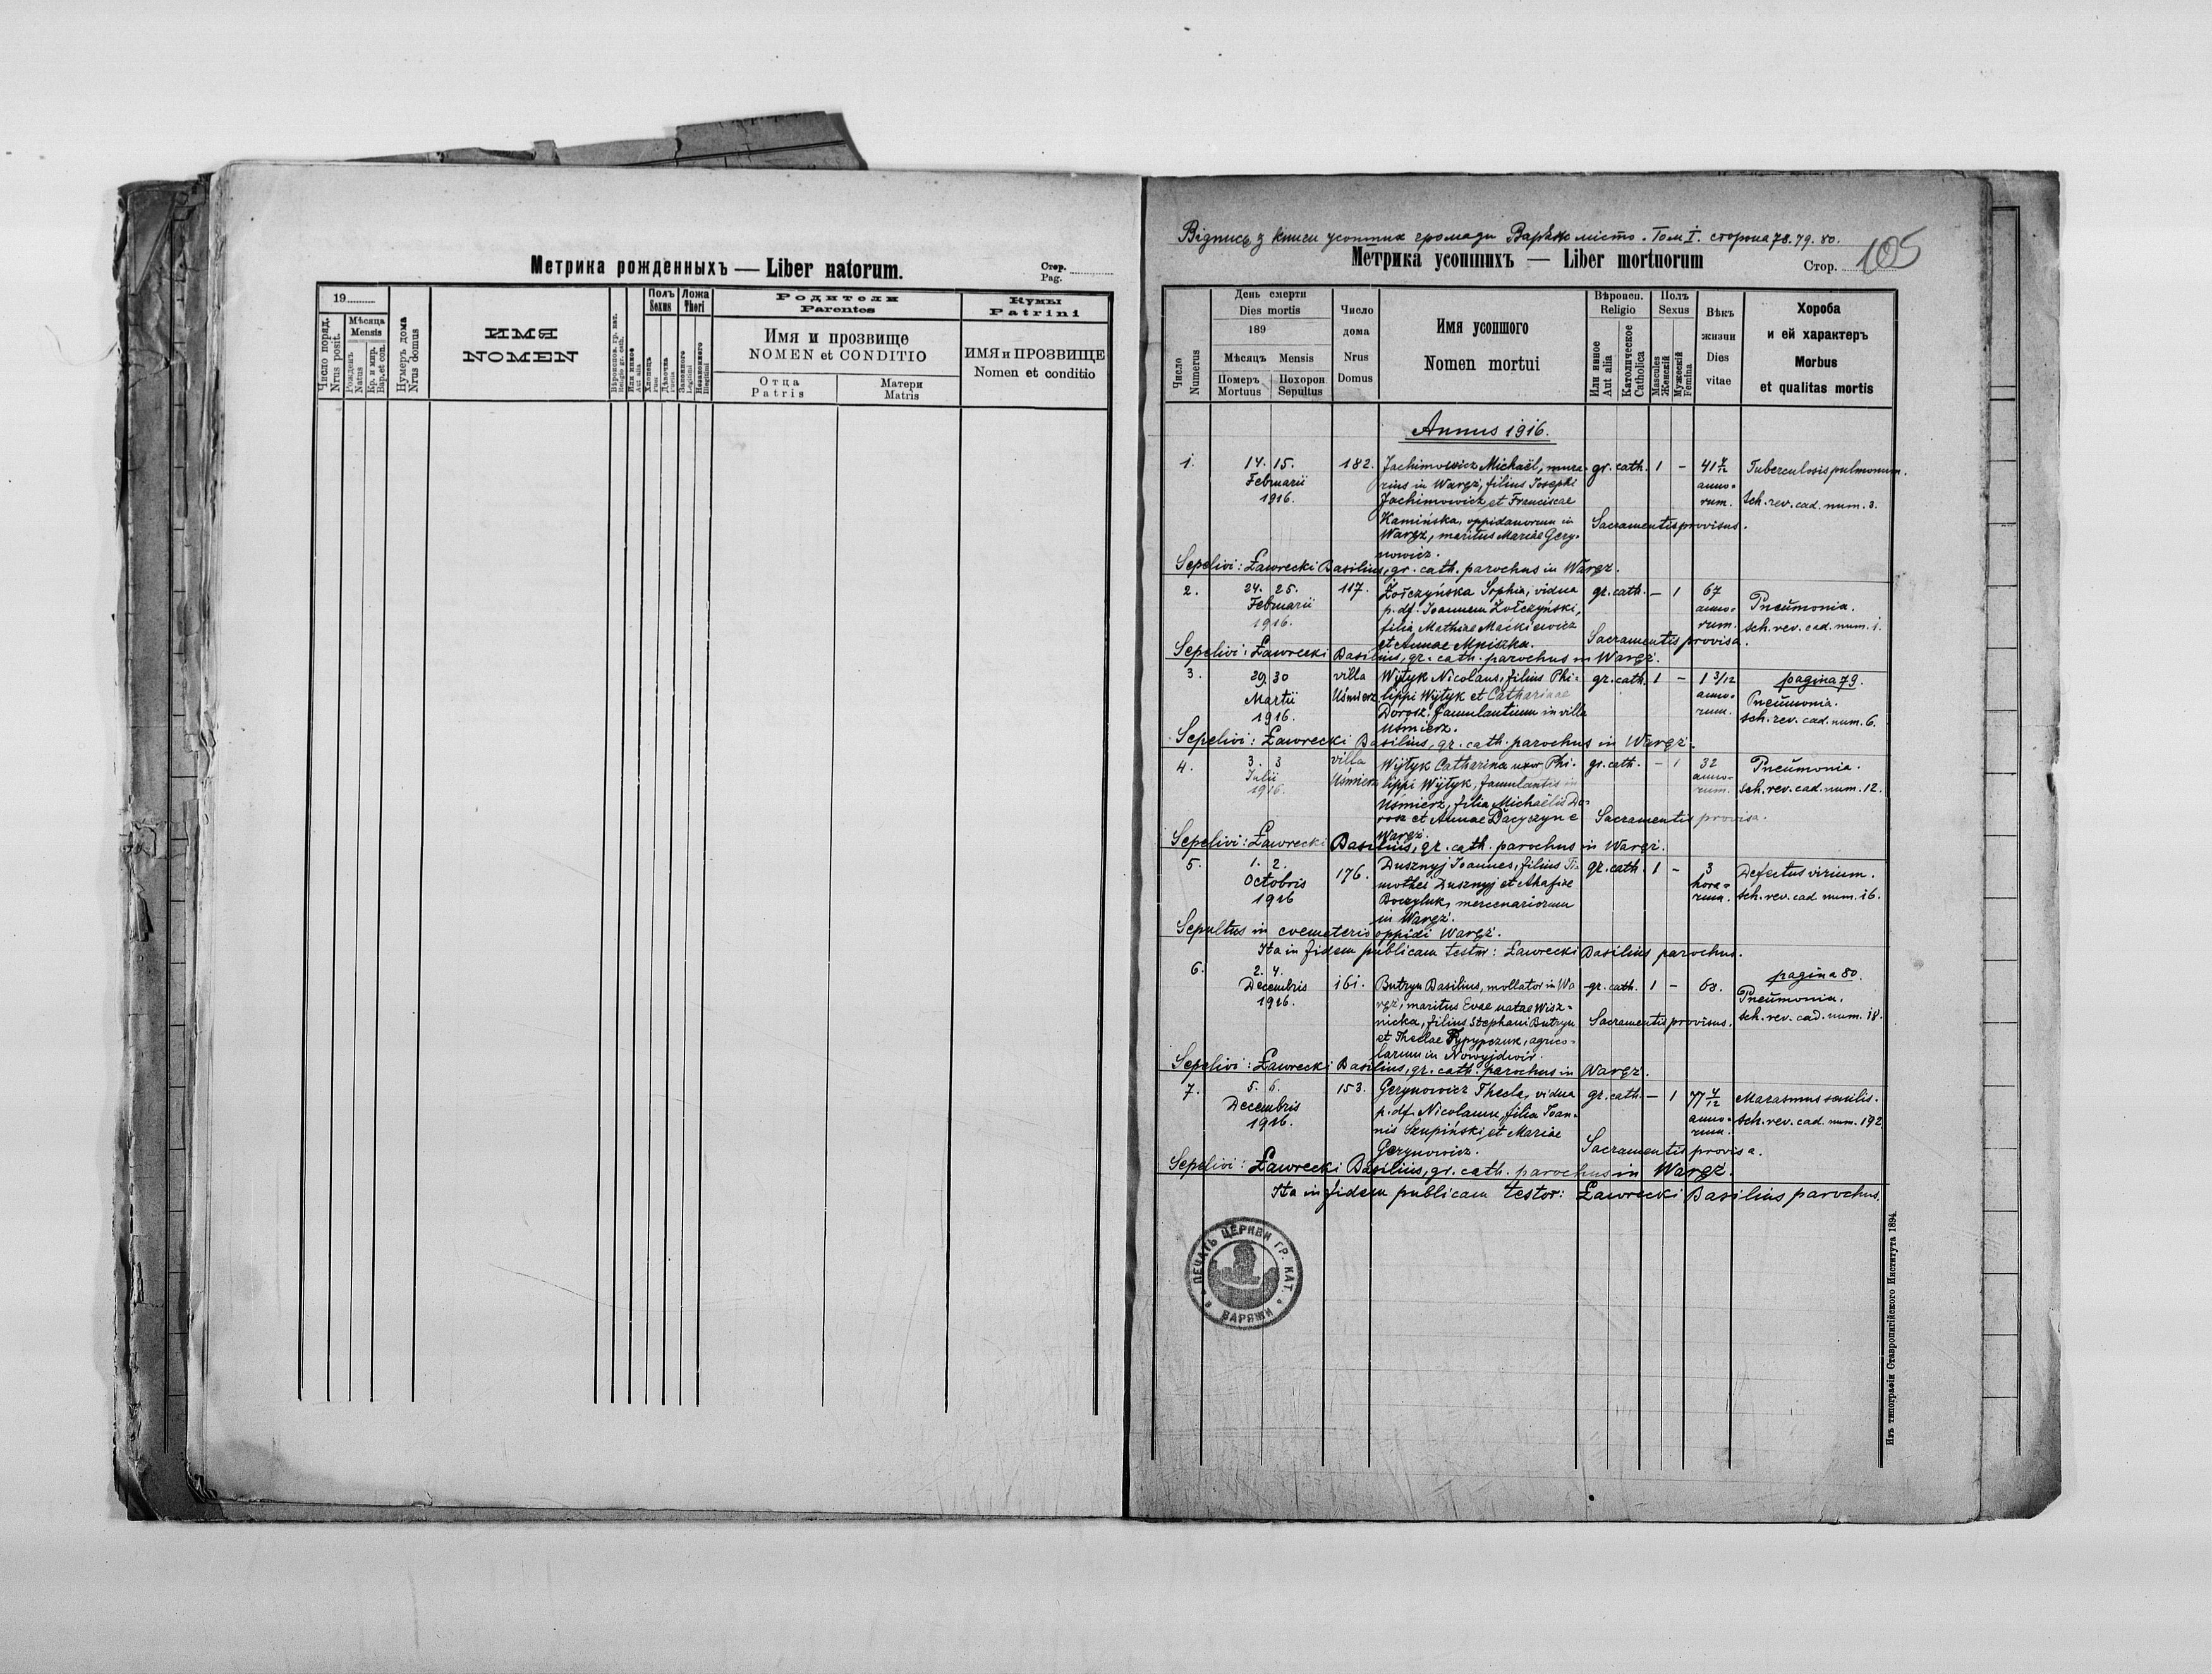 Метрика рожденныхъ — Liber natorum.
Стор.
Pag.
19
Число поряд.
Nrus posit.
Мѣсяца
Mensis
Рожденъ
Natus
Кр. и мир.
Bap. et con.
Нумеръ дома
Nrus domus
ИМЯ
NOMEN
Вѣроиспов. гр. кат.
Religio gr. cath.
Или инное
Aut alia
Полъ
Sexus
Хлопець
Puer
Дѣвочка
Puella
Ложа
Thori
Законного
Legitimi
Незаконного
Illegitimi
Родители
Parentes
Имя и прозвище
NOMEN et CONDITIO
Отца
Patris
Матери
Matris
Кумы
Patrini
ИМЯ и ПРОЗВИЩЕ
Nomen et conditio
Відпись з книги усопших громади Варяж місто. Том I. сторона 78. 79. 80.
Метрика усопшихъ — Liber mortuorum
Стор. 105
Число
Numerus
День смерти
Dies mortis
189
Мѣсяцъ Mensis
Померъ
Mortuus
Похорон
Sepultus
Число
дома
Nrus
Domus
Имя усопшого
Nomen mortui
Вѣроисп.
Religio
Или инное
Aut alia
Католическое
Catholica
Полъ
Sexus
Mascules
Женскій
Мужескій
Femina
Вѣкъ
жизни
Dies
vitae
Хороба
и ей характеръ
Morbus
et qualitas mortis
Annus 1916.
1. 14. 15. 182. Jachimowicz Michaël, mura- gr. cath. 1 – 41 Tuberculosis pulmonum.
Februarii rius in Waręż, filius Josephi anno-
1916. Jachimowicz et Franciscae rum. sch. rev. cad. num. 3.
Kamińska, oppidanorum in Sacramentis provisus.
Waręż, maritus Mariae Gery-
nowicz.
Sepelivi: Ławrecki Basilius, gr. cath. parochus in Waręż.
2. 24. 25. 117. Żołczyńska Sophia, vidua gr. cath. – 1 67
Februarii p. df. Joannem Żołczyński, anno- Pneŭmonia.
1916. filia Mathiae Maćkiewicz rum. sch. rev. cad. num. 1.
et Annae Mniszka. Sacramentis provisa.
Sepelivi: Ławrecki Basilius, gr. cath. parochus in Waręż.
3. 29. 30 villa Wijtyk Nicolaus, filius Phi- gr. cath. 1 – 1 3/12 pagina 79.
Martii Uśmierz lippi Wijtyk et Catharinae anno- Pneŭmonia.
1916. Dorosz, famulantium in villa rum. sch. rev. cad. num. 6.
Uśmierz.
Sepelivi: Ławrecki Basilius, gr. cath. parochus in Waręż.
4. 3. 3 villa Wijtyk Catharina uxor Phi- gr. cath. – 1 32 Pneŭmonia.
Julii Uśmierz lippi Wijtyk, famulantis in anno-
1916. Uśmierz, filia Michaëlis Do- rum. sch. rev. cad. num. 12.
rosz et Annae Dacyczyn e Sacramentis provisa.
Waręż.
Sepelivi: Ławrecki Basilius, gr. cath. parochus in Waręż.
5. 1. 2. 176. Dusznyj Joannes, filius Ti- gr. cath. 1 – 3 Defectus virium.
Octobris mothei Dusznyj et Ahafiae hora-
1916 Boczyluk, mercenariorum rum. sch. rev. cad. num. 16.
in Waręż.
Sepultus in coemeterio oppidi Waręż.
Ita in fidem publicam testor: Ławrecki Basilius parochus.
6. 2. 4. pagina 80.
Decembris 161. Butryn Basilius, mollator in Wa- gr. cath. 1 – 68. Pneŭmonia.
1916. ręż, maritus Evae natae Wisz-
nicka, filius Stephani Butryn Sacramentis provisus. sch. rev. cad. num. 18.
et Theclae agrico-
larum in Nowyjdwir.
Sepelivi: Ławrecki Basilius, gr. cath. parochus in Waręż.
7. 5. 6. 153. Gerynowicz Thecla, vidua gr. cath. – 1 77 Marasmus senilis.
Decembris p. df. Nicolaum, filia Joan- anno- sch. rev. cad. num. 192
1916. nis Szupiński et Mariae rum.
Gerynowicz. Sacramentis provisa.
Sepelivi: Ławrecki Basilius, gr. cath. parochus in Waręż.
Ita in fidem publicam testor: Ławrecki Basilius parochus.
ПЕЧАТЬ ЦЕРКВИ ГР. КАТ.
ВАРЯЖИ
Изъ типографіи Ставропигійского Института 1894.